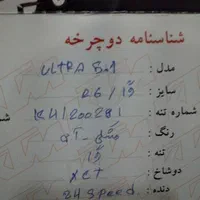 شناسنامه دوچرخه
مدل : ULTRA 5.1
سایز : 26 / آ
شماره تنه : K41200281
رنگ : مشکی - آبی
تنه :
دوشاخ : XCT
دنده : 24 Speed